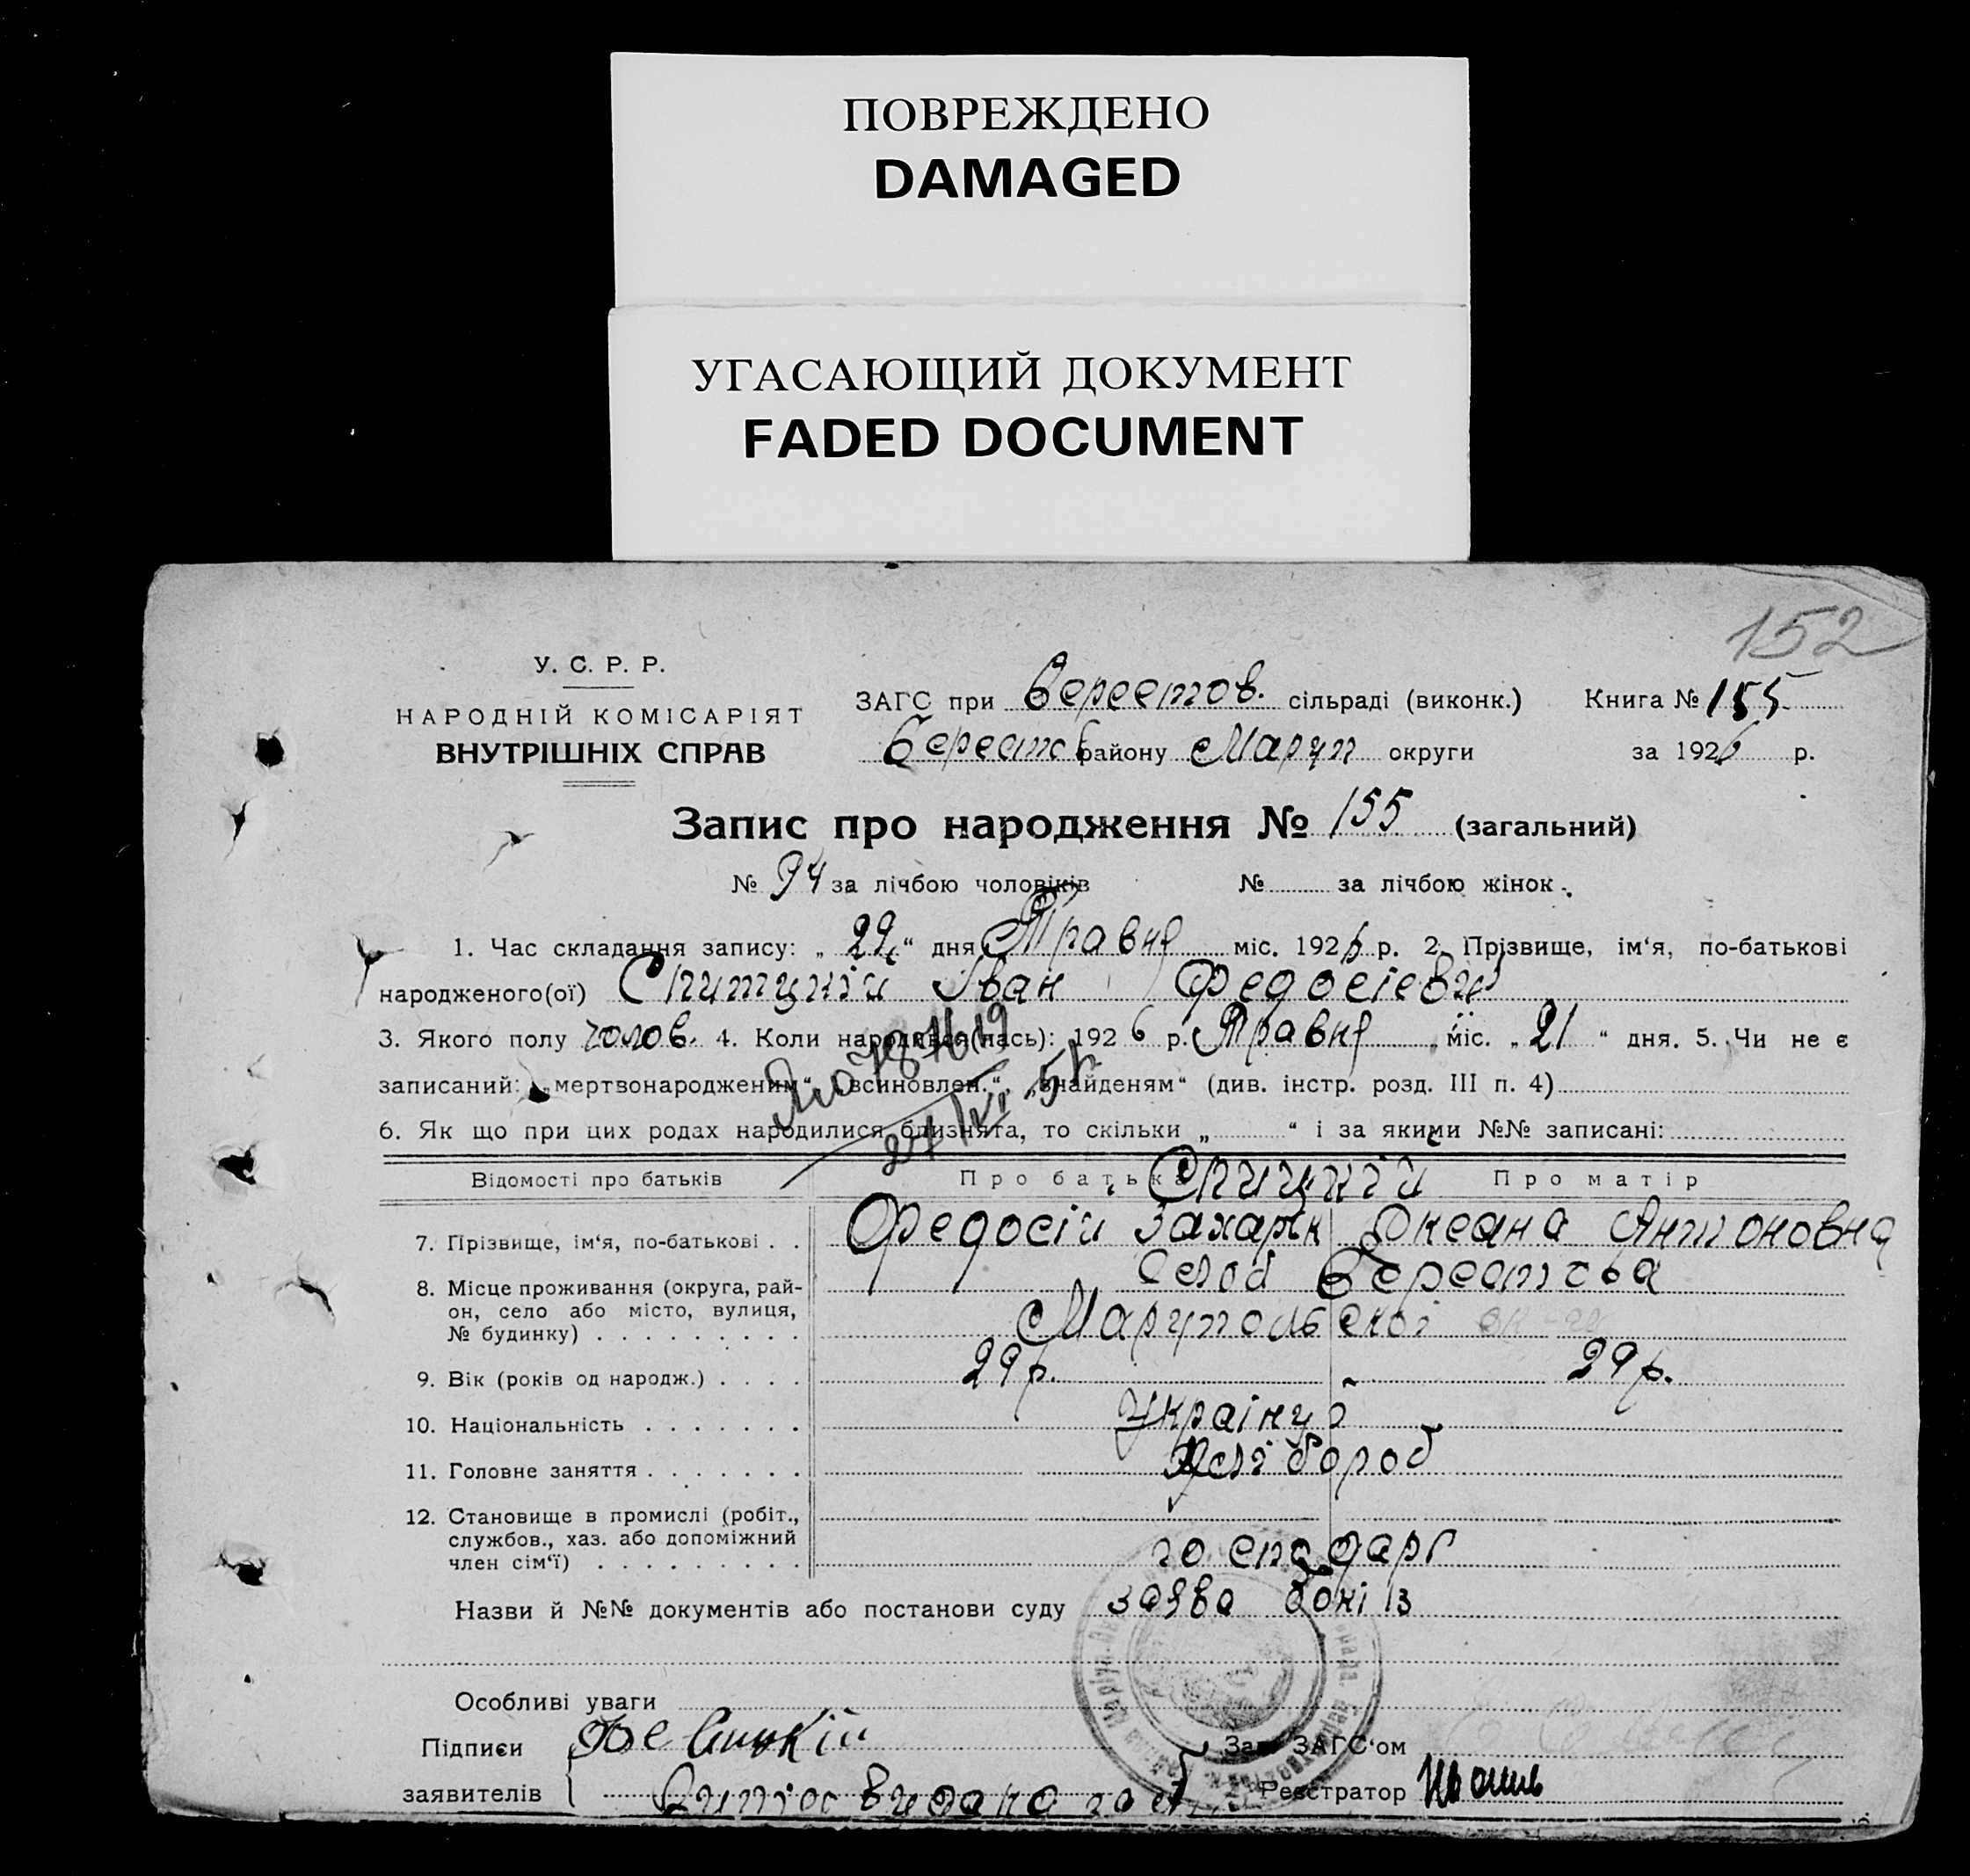 ПОВРЕЖДЕНО
DAMAGED
УГАСАЮЩИЙ ДОКУМЕНТ
FADED DOCUMENT
152
У. С. Р. Р.
НАРОДНІЙ КОМІСАРІЯТ
ВНУТРІШНІХ СПРАВ
ЗАГС при Берестов. сільраді (виконк.) Книга № 155
Берестов району Маруп округи за 1926 р.
Запис про народження № 155 (загальний)
№ 94 за лічбою чоловіків № за лічбою жінок.
1. Час складання запису: „ 29 “ дня Травня міс. 1926 р. 2. Прізвище, ім‘я, по-батькові
народженого(ої) Спицкій Іван Федосієвич
3. Якого полу чолов. 4. Коли народився(лась): 1926 р. Травня міс. „ 21 “ дня. 5. Чи не є
записаний: „мертвонародженим“, „всиновлен.“, „знайденям“ (див. інстр. розд. III п. 4)
6. Як що при цих родах народилися близнята, то скільки „ “ і за якими №№ записані:
Відомості про батьків Про батька Спицкій Про матір
7. Прізвище, ім‘я, по-батькові . . Федосій Захарів Оксана Антоновна
8. Місце проживання (округа, рай-
он, село або місто, вулиця,
№ будинку) Село Берестова
Марупольскої ок-ги
9. Вік (років од народж.) . . . . 29 р. 29 р.
10. Національність . . . . . . . Українці
11. Головне заняття . . . . . . . Хлібороб
12. Становище в промислі (робіт.,
службов., хаз. або допоміжний
член сім‘ї) . . . . . . . . . господарі
Назви й №№ документів або постанови суду заява
Особливі уваги
Підписи
заявителів
Зав. ЗАГС‘ом
Реєстратор